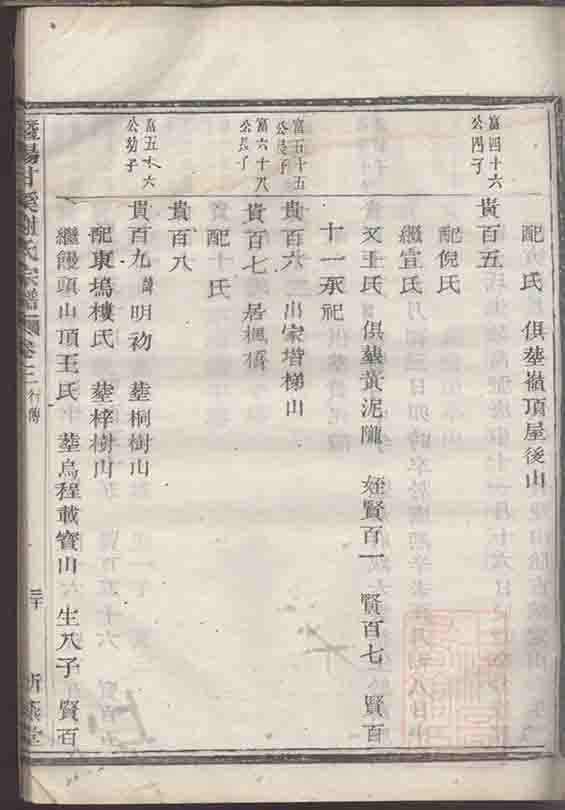 配 氏 俱塟嶺頂屋後山
富四十六
公四子
貴百五
配倪氏
繼宣氏
又王氏 俱塟黃泥隴 姪賢百一 賢百七 賢百
十一承祀
富五十五
公長子
貴百六 出家堦梯山
富六十八
公長子
貴百七 居楓橋
配十氏
貴百八
富五十六
公幼子
貴百九 諱明初 塟桐樹山
配東塢樓氏 塟梓樹山
繼饅頭山頂王氏 塟烏程載寳山 生八子 賢百
暨陽甘溪謝氏宗譜 卷二 行傳 三十